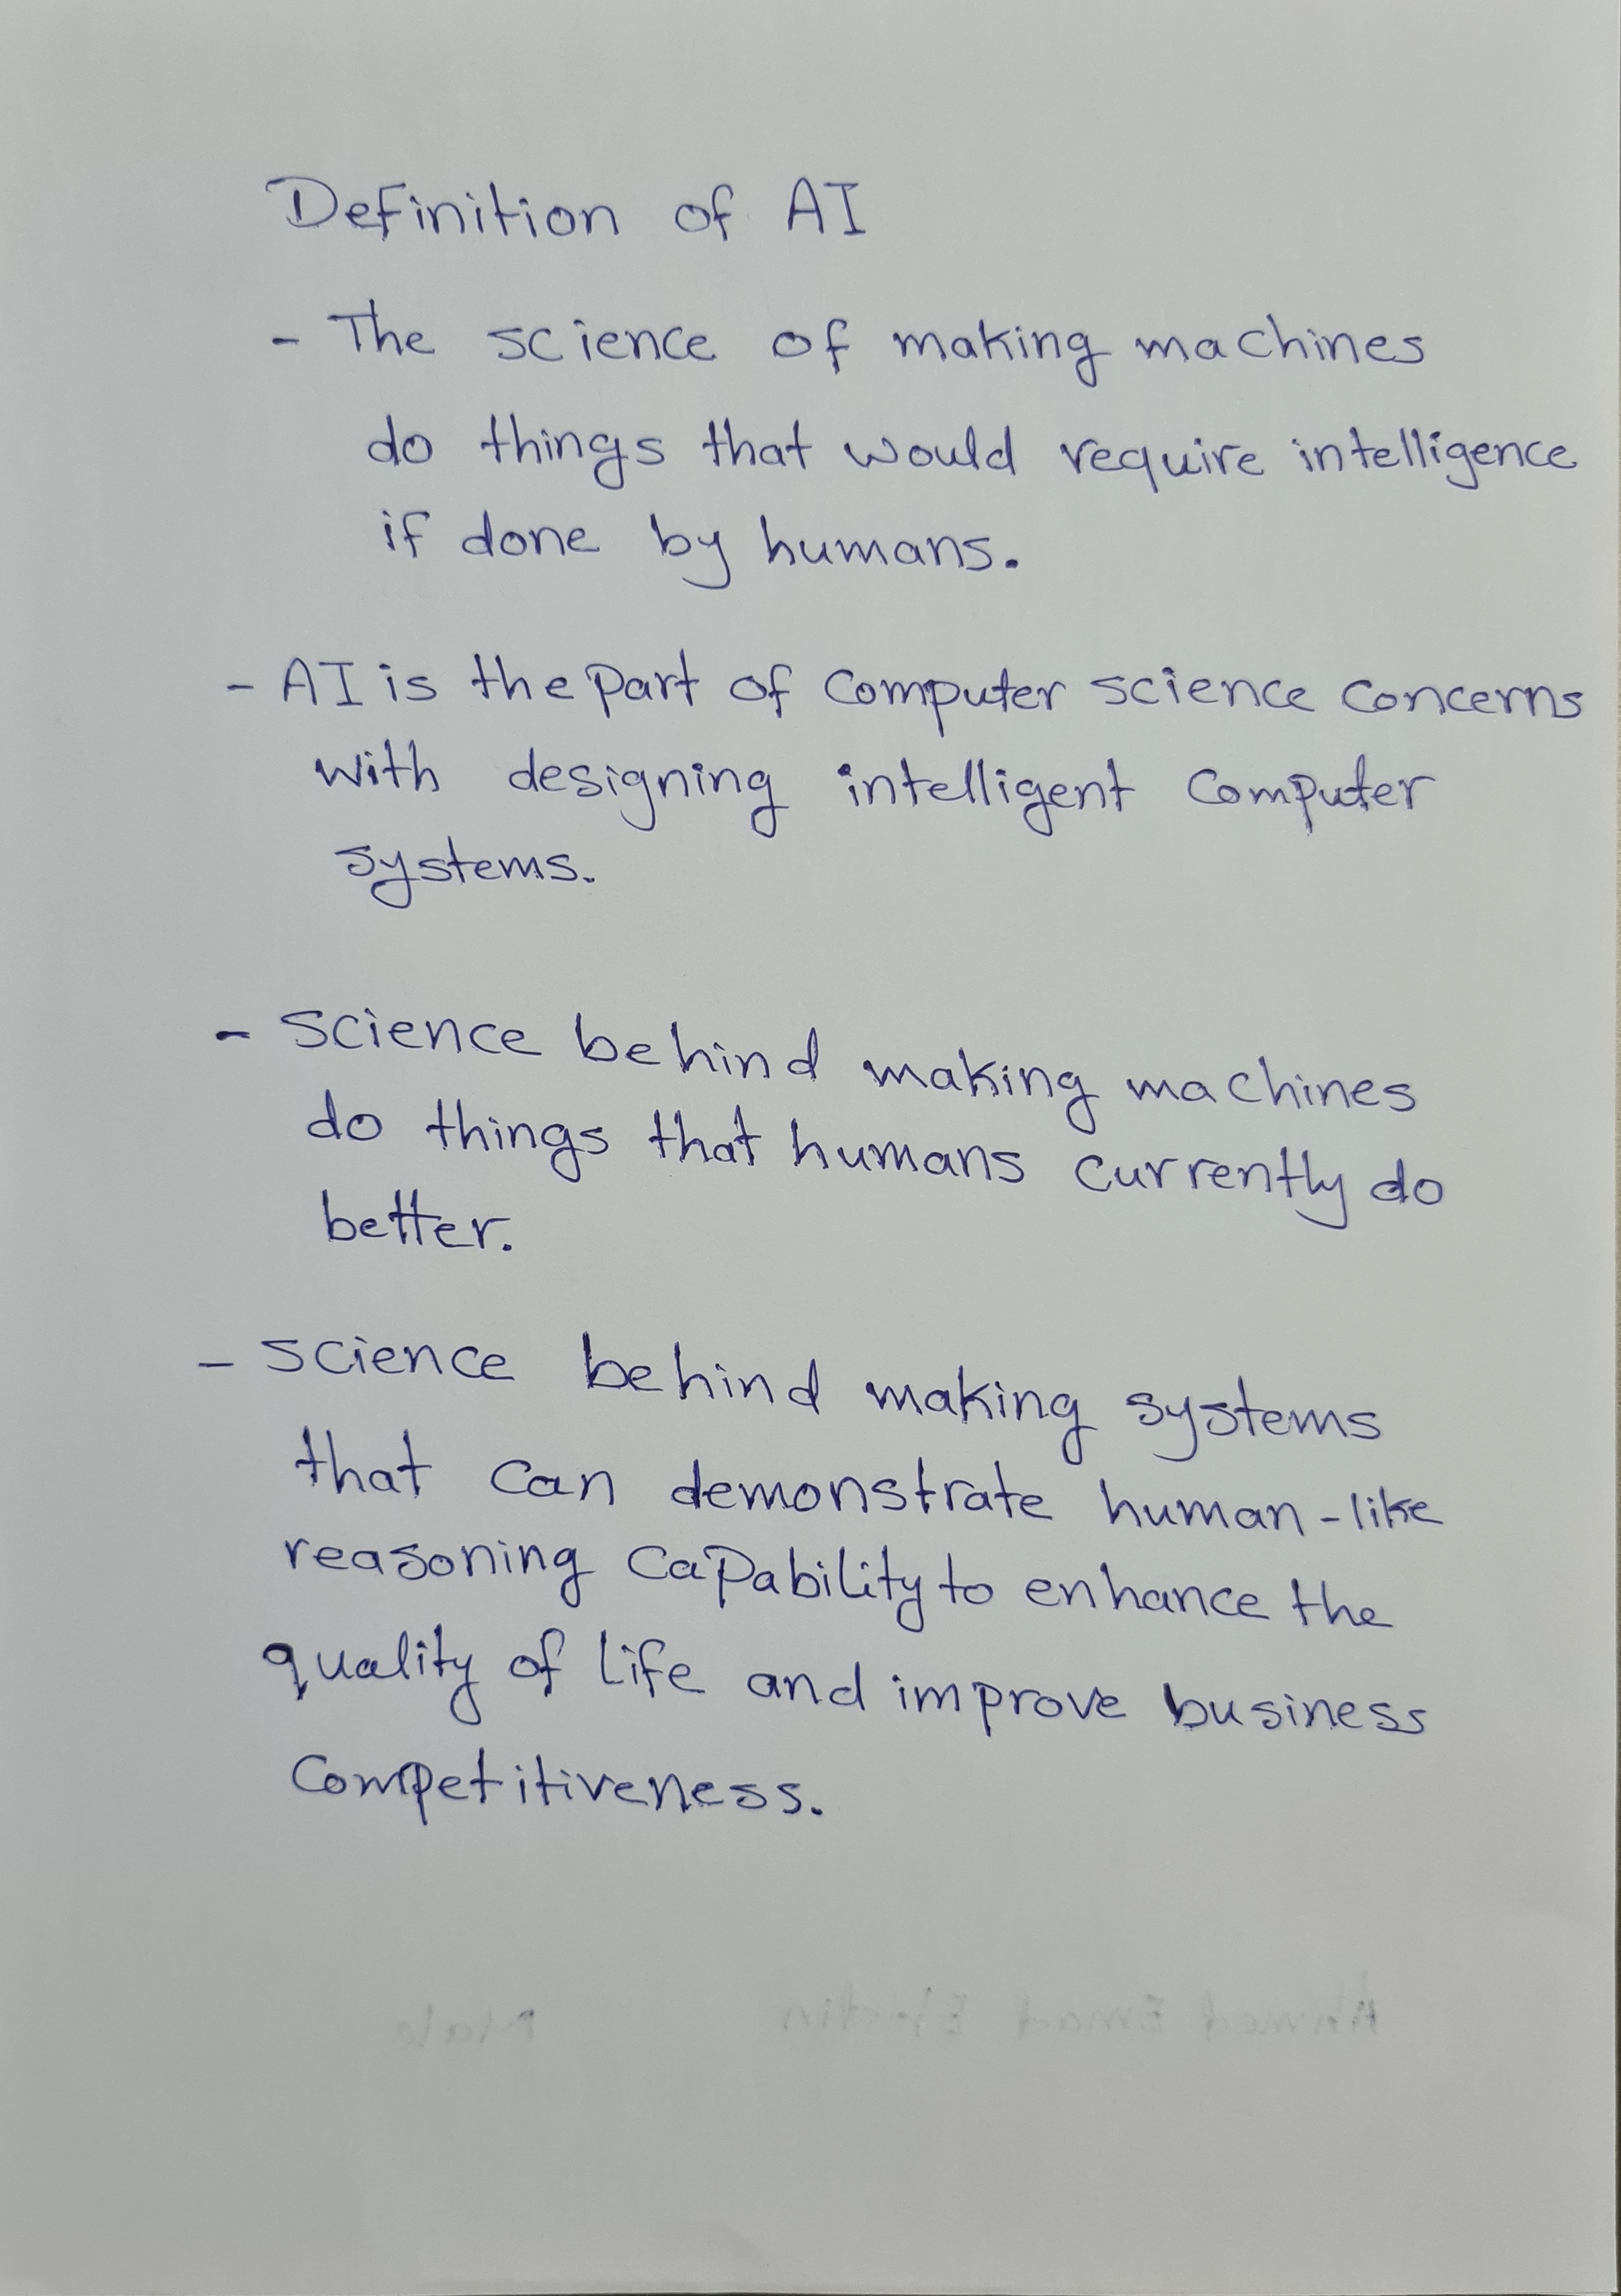 Definition of AI
- The science of making machines
do things that would require intelligence
if done by humans.
- AI is the part of computer science concerns
with designing intelligent computer
systems.
- science behind making machines
do things that humans currently do
better.
- science behind making systems
that can demonstrate human-like
reasoning capability to enhance the
quality of life and improve business
competitiveness.